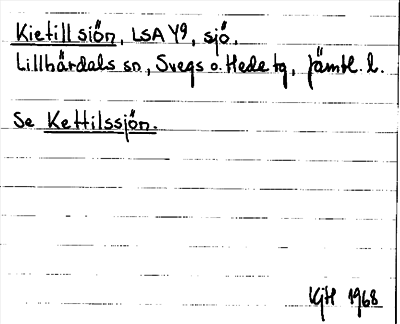 Kietill siön, LSA Y9, sjö,
Lillhärdals sn, Svegs o. Hede tg, Jämtl. l.
Se Kettilssjön.
KGH 1968